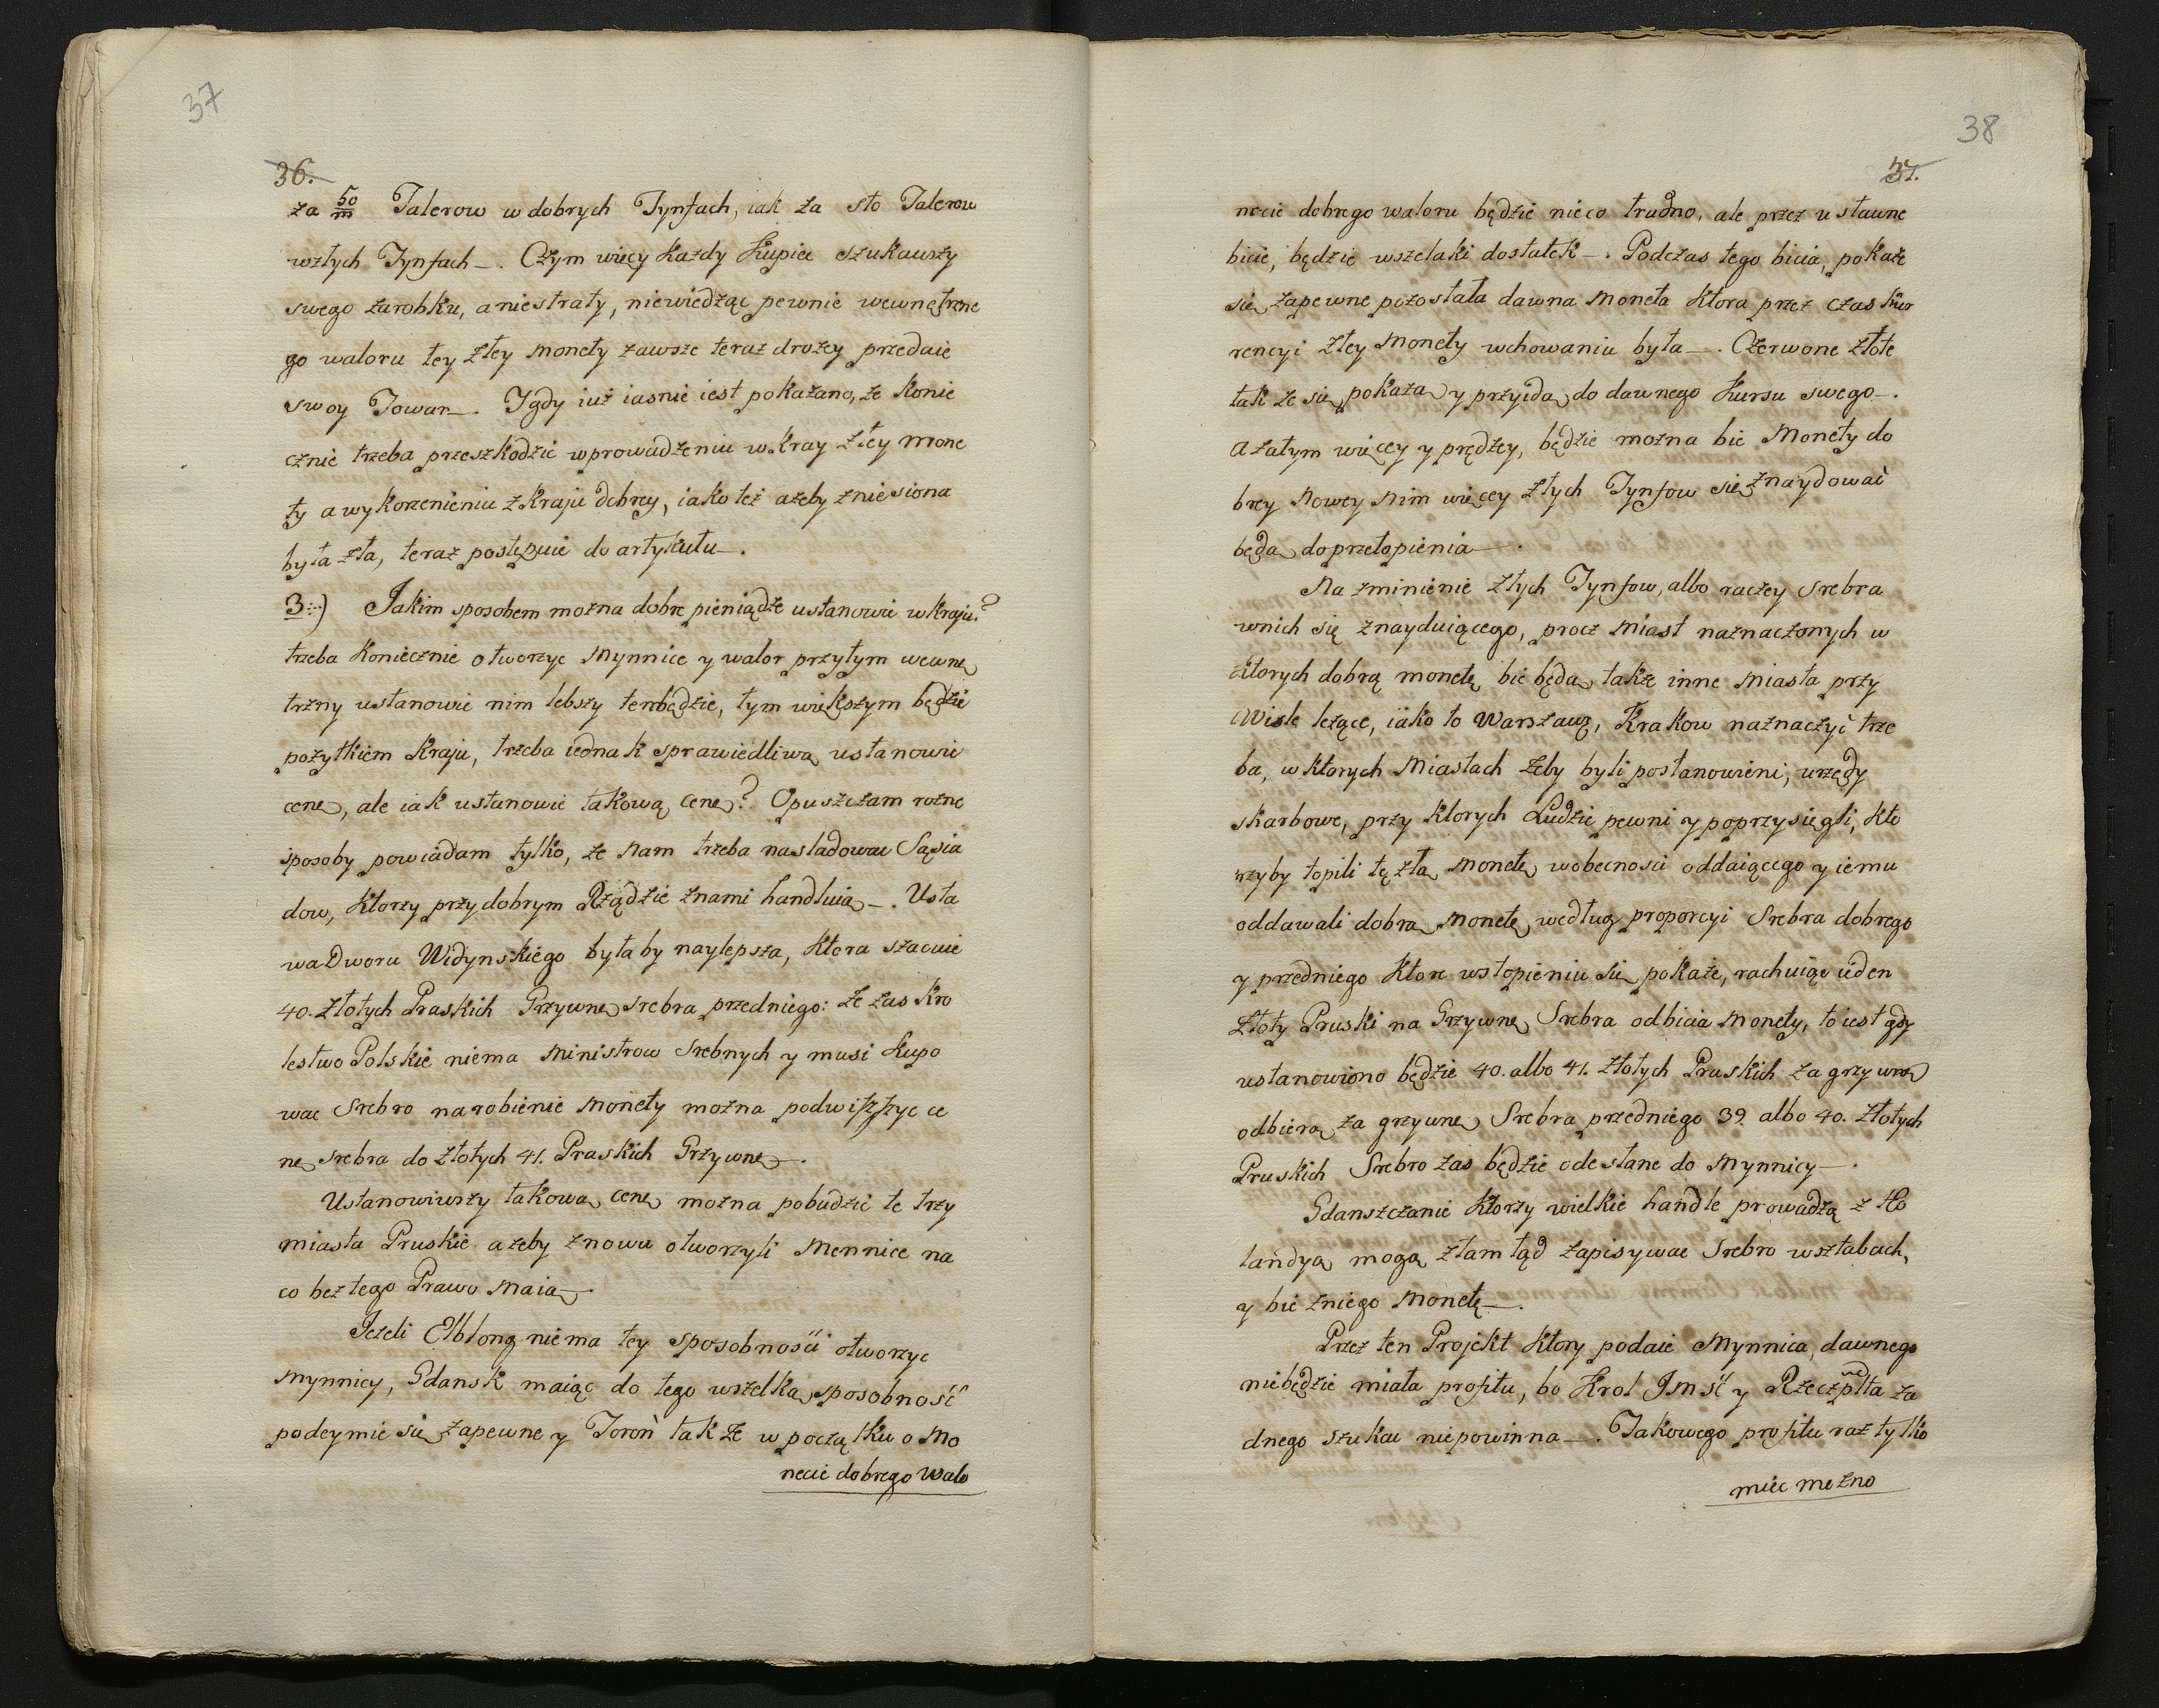 37
36.
za 50/m Talerow w dobrych Tynfach, iak za sto Talerow
wzłych Tynfach —. Czym więcy każdy kupiec szukauszy
swego zarobku, a niestraty, niewiedząc pewnie wewnętrzne
go waloru tey złey monety zawsze teraz drożey przedaie
swoy Towar —. Y gdy iuż iasnie iest pokazano, że konie
cznie trzeba przeszkodzic wprowadzeniu w kray złey mone
ty a wykorzenieniu z kraju dobrey, iako też ażeby zniesiona
była zła, teraz postępuie do artykułu —.
3::) Jakim sposobem można dobre pieniądze ustanowic w kraju?
trzeba koniecznie otworzyc Mynnice y walor przytym wewnę
trzny ustanowic nim lebszy tembędzie, tym większym będzie
pożytkiem kraju, trzeba iednak sprawiedliwą ustanowic
cenę, ale iak ustanowic takową cenę? Opuszczam rożne
sposoby powiadam tylko, że Nam trzeba nasladowac Sąsia
dow, ktorzy przy dobrym Rządzie znami handluią —. Usta
wa Dworu Widynskiego byłaby naylepsza, ktora szacuie
40. złotych Praskich Grzywnę srebra przedniego: że zas Kro
lestwo Polskie niema Ministrow Srebnych y musi kupo
wac Srebro na robienie Monety można podwiższyc ce
nę srebra do złotych 41. Praskich Grzywnę —.
Ustanowiuszy takową cenę można pobudzic te trzy
miasta Pruskie ażeby znowu otworzyli Mennice na
co bez tego Prawo Maią —.
Jeżeli Elblong niema tey sposobności otworzyc
Mynnicy, Gdansk maiąc do tego wszelką sposobność
podeymie się zapewne y Toroń także w początku o Mo
necie dobrego Walo
38
37.
necie dobrego waloru będzie nieco trudno, ale przez ustawne
bicie, będzie wszelaki dostatek —. Podczas tego bicia, pokaże
się zapewne pozostała dawna Moneta ktora przez czas kur
rencyi złey Monety wchowaniu była —. Czerwone złote
także się pokażą y przyidą do dawnego kursu swego —.
A zatym więcey y prędzey, będzie można bic Monety do
brey Nowey Nim więcey złych Tynfow się znaydować
będą do przetopienia —.
Na zminienie złych Tynfow, albo raczey srebra
wnich się znayduiącego, procz Miast naznaczonych w
ktorych dobrą monetę bic będą, także inne Miasta przy
Wisle leżące, iako to Warszawę, Krakow naznaczyć trze
ba, w ktorych Miastach żeby byli postanowieni, urzędy
skarbowe, przy ktorych Ludzie pewni y poprzysięgli, kto
rzyby topili tę złą Monetę wobecnosci oddaiącego y iemu
oddawali dobrą Monetę według proporcyi Srebra dobrego
y przedniego ktore wstopieniu się pokaże, rachuiąc ieden
złoty Pruski na Grzywnę Srebra odbicia Monety, to iest gdy
ustanowiono będzie 40. albo 41. złotych Pruskich za grzywnę
odbierą za grzywnę Srebra przedniego 39. albo 40. złotych
Pruskich Srebro zas będzie odesłane do Mynnicy —.
Gdanszczanie ktorzy wielkie handle prowadzą z Ho
landyą mogą ztamtąd zapisywac Srebro w sztabach,
y bic zniego Monetę —.
Przez ten Projekt ktory podaie Mynnica, dawnego
niebędzie miała profitu, bo Krol Jmść y Rzeczplta ża
dnego szukac niepowinna —. Takowego profitu raz tylko
miec możno